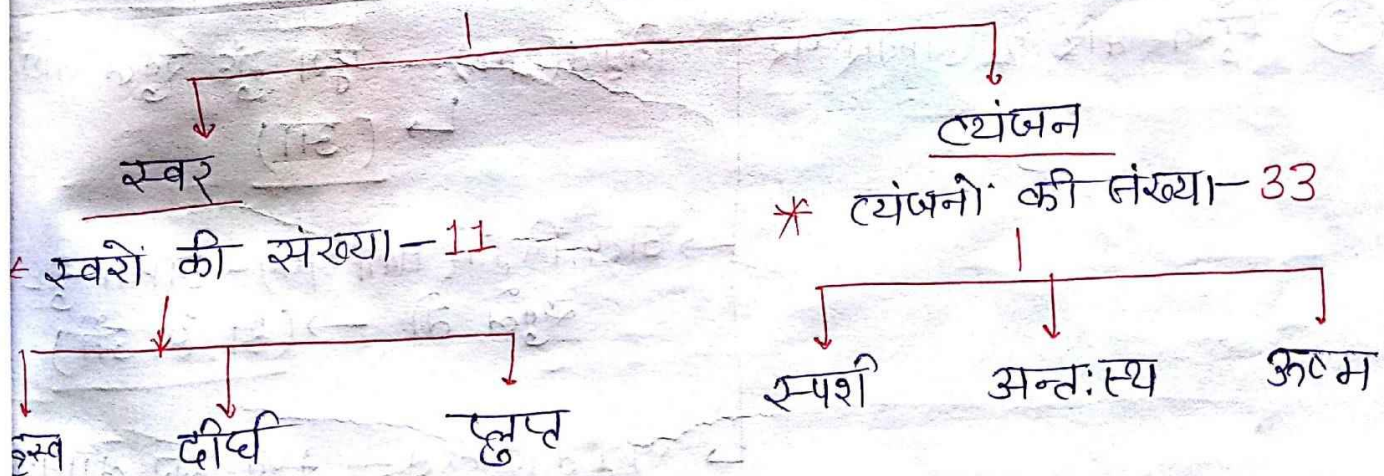 स्वर
व्यंजन
स्वरों की संख्या - 11
* व्यंजनों की संख्या - 33
ह्रस्व दीर्घ प्लुप्त
स्पर्श अन्तःस्थ ऊष्म